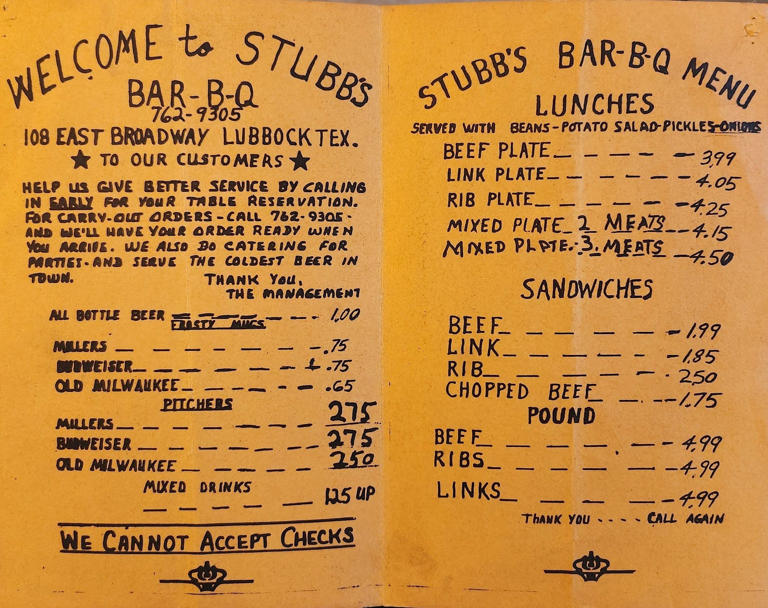 WELCOME to STUBB'S
BAR-B-Q
762-9305
108 EAST BROADWAY LUBBOCK TEX.
★ TO OUR CUSTOMERS ★
HELP US GIVE BETTER SERVICE BY CALLING
IN EARLY FOR YOUR TABLE RESERVATION.
FOR CARRY-OUT ORDERS-CALL 762-9305-
AND WE'LL HAVE YOUR ORDER READY WHEN
YOU ARRIVE. WE ALSO DO CATERING FOR
PARTIES-AND SERVE THE COLDEST BEER IN
TOWN. THANK YOU,
THE MANAGEMENT
ALL BOTTLE BEER 1.00
FROSTY MUGS
MILLERS .75
BUDWEISER .75
OLD MILWAUKEE .65
PITCHERS
MILLERS 275
BUDWEISER 275
OLD MILWAUKEE 250
MIXED DRINKS
125 UP
WE CANNOT ACCEPT CHECKS
STUBB'S BAR-B-Q MENU
LUNCHES
SERVED WITH BEANS-POTATO SALAD-PICKLES-ONIONS
BEEF PLATE 3.99
LINK PLATE 4.05
RIB PLATE 4.25
MIXED PLATE 2 MEATS 4.15
MIXED PLATE 3 MEATS 4.50
SANDWICHES
BEEF 1.99
LINK 1.85
RIB 250
CHOPPED BEEF 1.75
POUND
BEEF 4.99
RIBS 4.99
LINKS 4.99
THANK YOU .... CALL AGAIN